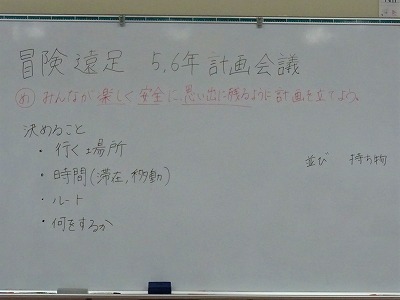 冒険遠足 5,6年計画会議
め みんなが楽しく安全に、思い出に残るように計画を立てよう。
決めること
・行く場所
・時間(滞在,移動)
・ルート
・何をするか
並び 持ち物